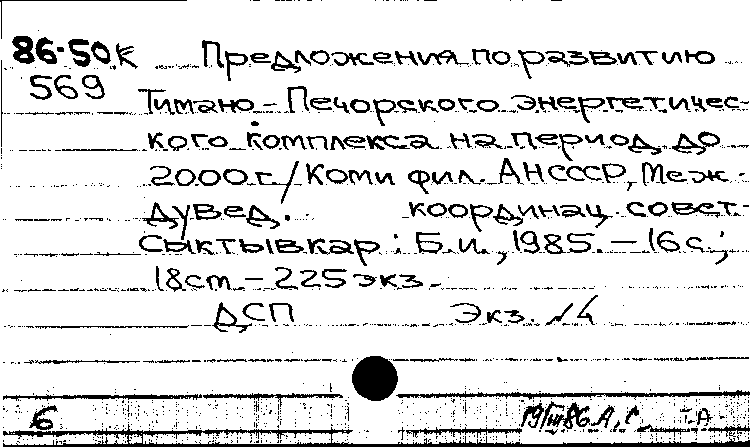 86-50К Предложения по развитию
569 Тимано-Печорского энергетичес-
кого комплекса на период до
2000 г./Коми фил. АН СССР, Меж-
дувед. координац. совет.-
Сыктывкар: Б.и., 1985. - 16 с.;
18 cm. - 225 экз.
ДСП Экз. №4
6 19/III 86 А.